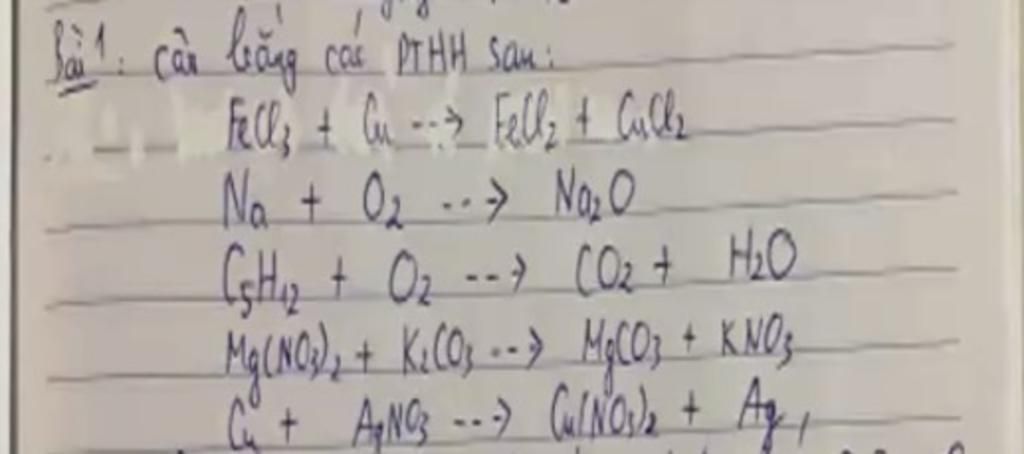 Bài 1: cân bằng các PTHH sau:
FeCl₃ + Cu --→ FeCl₂ + CuCl₂
Na + O₂ --→ Na₂O
C₅H₁₂ + O₂ --→ CO₂ + H₂O
Mg(NO₃)₂ + K₂CO₃ --→ MgCO₃ + KNO₃
Cu + AgNO₃ --→ Cu(NO₃)₂ + Ag